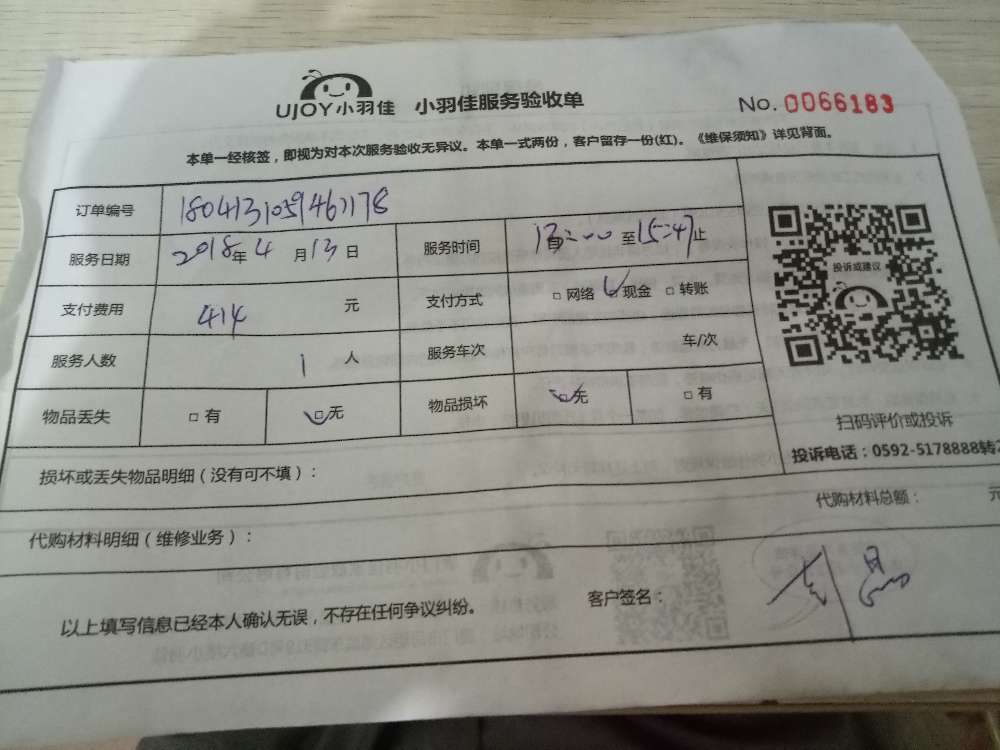 UJOY小羽佳 小羽佳服务验收单 No. 0066183
本单一经核签，即视为对本次服务验收无异议。本单一式两份，客户留存一份(红)。《维保须知》详见背面。
订单编号
服务日期 2018年4月13日 服务时间 13:00至15:47止
支付费用 414 元 支付方式 □网络 □现金 □转账
投诉或建议
服务人数 1 人 服务车次 车/次
物品丢失 □有 □无 物品损坏 □无 □有
扫码评价或投诉
投诉电话：0592-5178888转2
损坏或丢失物品明细（没有可不填）：
代购材料总额： 元
代购材料明细（维修业务）：
以上填写信息已经本人确认无误，不存在任何争议纠纷。 客户签名：